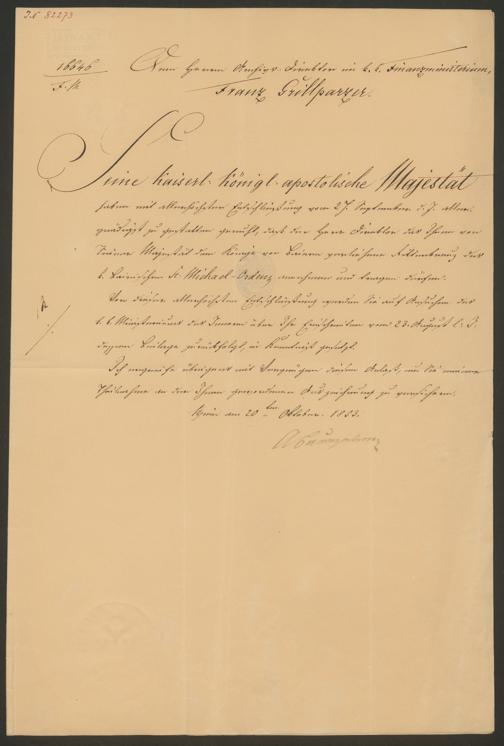 I.N 82273
16646
F. M.
Dem Herrn Archivs-Direktor im k. k. Finanzministerium,
Franz Grillparzer.
Seine kaiserl: königl: apostolische Majestät
haben mit allerhöchster Entschließung vom 27. September d. J. aller-
gnädigst zu gestatten geruht, daß der Herr Direktor das Ihnen von
Seiner Majestät dem Könige von Baiern verliehene Ritterkreuz des
k. bairischen St Michael-Ordens annehmen und tragen dürfen.
Von dieser allerhöchsten Entschließung werden Sie auf Ansuchen des
k. k. Ministeriums des Innern über Ihr Einschreiten vom 23. August l. J.
dessen Beilage zurückfolgt, in Kenntniß gesetzt.
Ich ergreife übrigens mit Vergnügen diesen Anlaß, um Sie meiner
Theilnahme an der Ihnen gewordenen Auszeichnung zu versichern.
Wien am 20ten Oktober 1853.